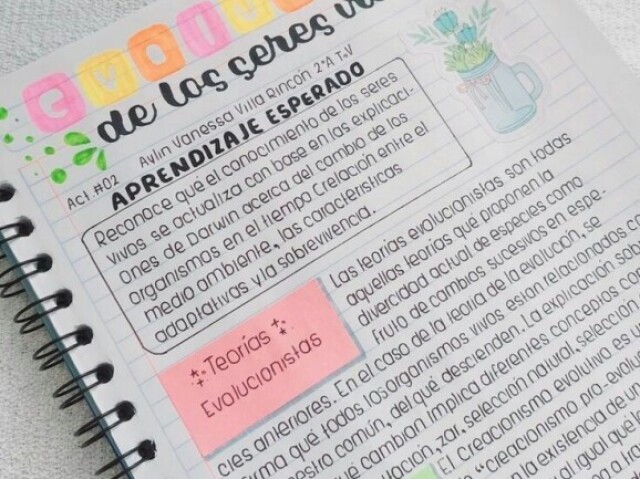 de los seres
Aylin Vanessa Villa Rincón 2°A T.V
Act #02
APRENDIZAJE ESPERADO
Reconoce qué el conocimiento de los seres
vivos se actualiza con base en las explicaci-
ones de Darwin acerca del cambio de los
organismos en el tiempo (relación entre el
medio ambiente, las características
adaptativas y la sobrevivencia.
Teorías
Evolucionistas
Las teorías evolucionistas son todas
aquellas teorías qué proponen la
divercidad actual de especies como
fruto de cambios sucesivos en espe-
cies anteriores. En el caso de la teoría de la evolución, se
firma qué todos los organismos vivos están relacionados
estro común, del qué descienden. La explicación
que cambian implica diferentes conceptos
zar, selección natural, selección
El Creacionismo evolutivo es
"creacionismo pro-evol
en la existencia de
al igual qué